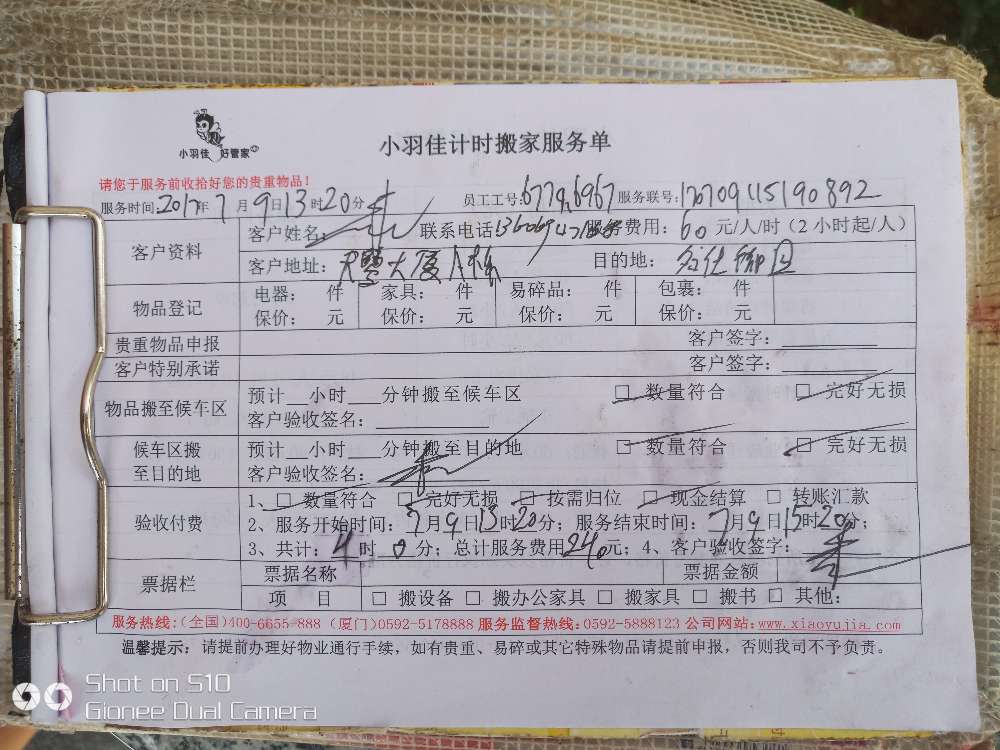 小羽佳 好管家
小羽佳计时搬家服务单
请您于服务前收拾好您的贵重物品！
服务时间:2017年7月9日13时20分 员工工号: 服务联号:
客户资料
客户姓名: 联系电话 服务费用: 60 元/人/时(2小时起/人)
客户地址: 大厦 目的地:
物品登记
电器: 件 家具: 件 易碎品: 件 包裹: 件
保价: 元 保价: 元 保价: 元 保价: 元
贵重物品申报 客户签字:
客户特别承诺 客户签字:
物品搬至候车区
预计__小时___分钟搬至候车区 □ 数量符合 □ 完好无损
客户验收签名:
候车区搬至目的地
预计__小时___分钟搬至目的地 □ 数量符合 □ 完好无损
客户验收签名:
验收付费
1、□ 数量符合 □ 完好无损 □ 按需归位 □ 现金结算 □ 转账汇款
2、服务开始时间: 7月9日13时20分; 服务结束时间: 7月9日15时20分;
3、共计: 4时 0分; 总计服务费用240元; 4、客户验收签字:
票据栏
票据名称 票据金额
项 目 □ 搬设备 □ 搬办公家具 □ 搬家具 □ 搬书 □ 其他:
服务热线:(全国)400-6655-888 (厦门)0592-5178888 服务监督热线:0592-5888123 公司网站:www.xiaoyujia.com
温馨提示: 请提前办理好物业通行手续,如有贵重、易碎或其它特殊物品请提前申报,否则我司不予负责。
Shot on S10
Gionee Dual Camera